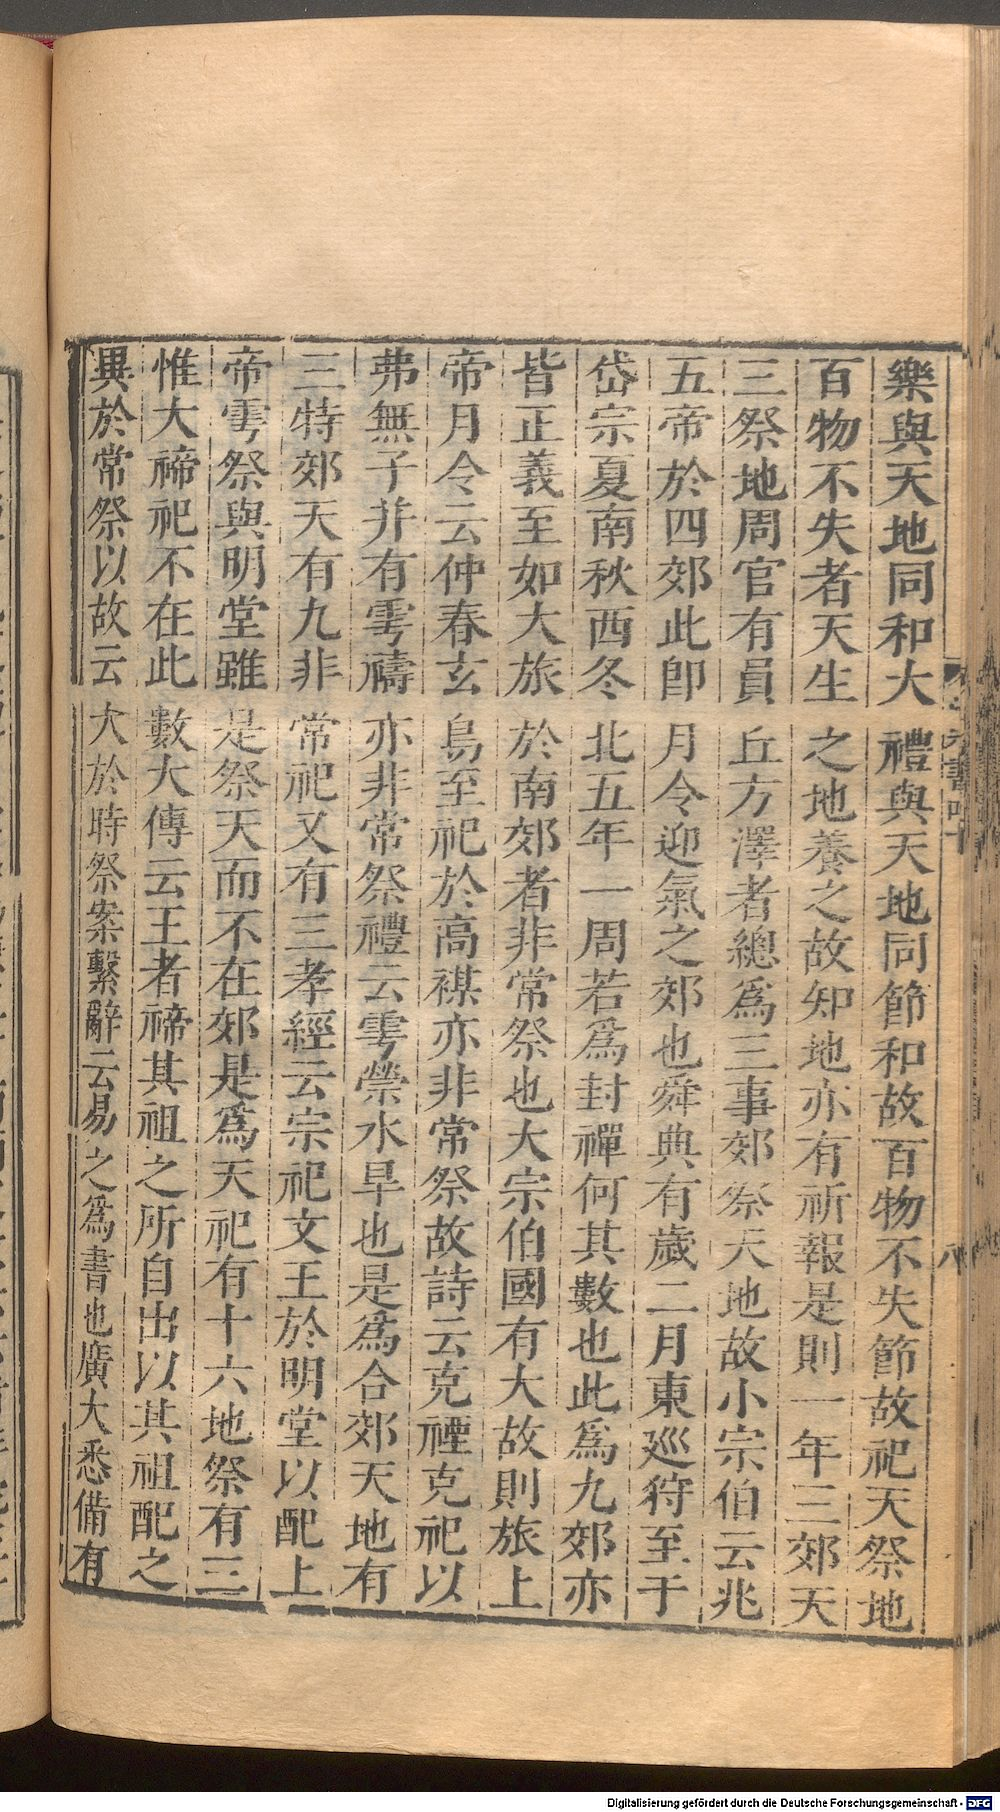 樂與天地同和大禮與天地同節和故百物不失節故祀天祭地
百物不失者天生之地養之故知地亦有祈報是則一年三郊天
三祭地周官有員丘方澤者總爲三事郊祭天地故小宗伯云兆
五帝於四郊此卽月令迎氣之郊也舜典有歲二月東巡狩至于
岱宗夏南秋西冬北五年一周若爲封禪何其數也此爲九郊亦
皆正義至如大旅於南郊者非常祭也大宗伯國有大故則旅上
帝月令云仲春玄鳥至祀於高禖亦非常祭故詩云克禋克祀以
弗無子并有雩禱亦非常祭禮云雩禜水旱也是爲合郊天地有
三特郊天有九非常祀又有三孝經云宗祀文王於明堂以配上
帝雩祭與明堂雖是祭天而不在郊是爲天祀有十六地祭有三
惟大禘祀不在此數大傳云王者禘其祖之所自出以其祖配之
異於常祭以故云大於時祭案繫辭云易之爲書也廣大悉備有
八
Digitalisierung gefördert durch die Deutsche Forschungsgemeinschaft - DFG